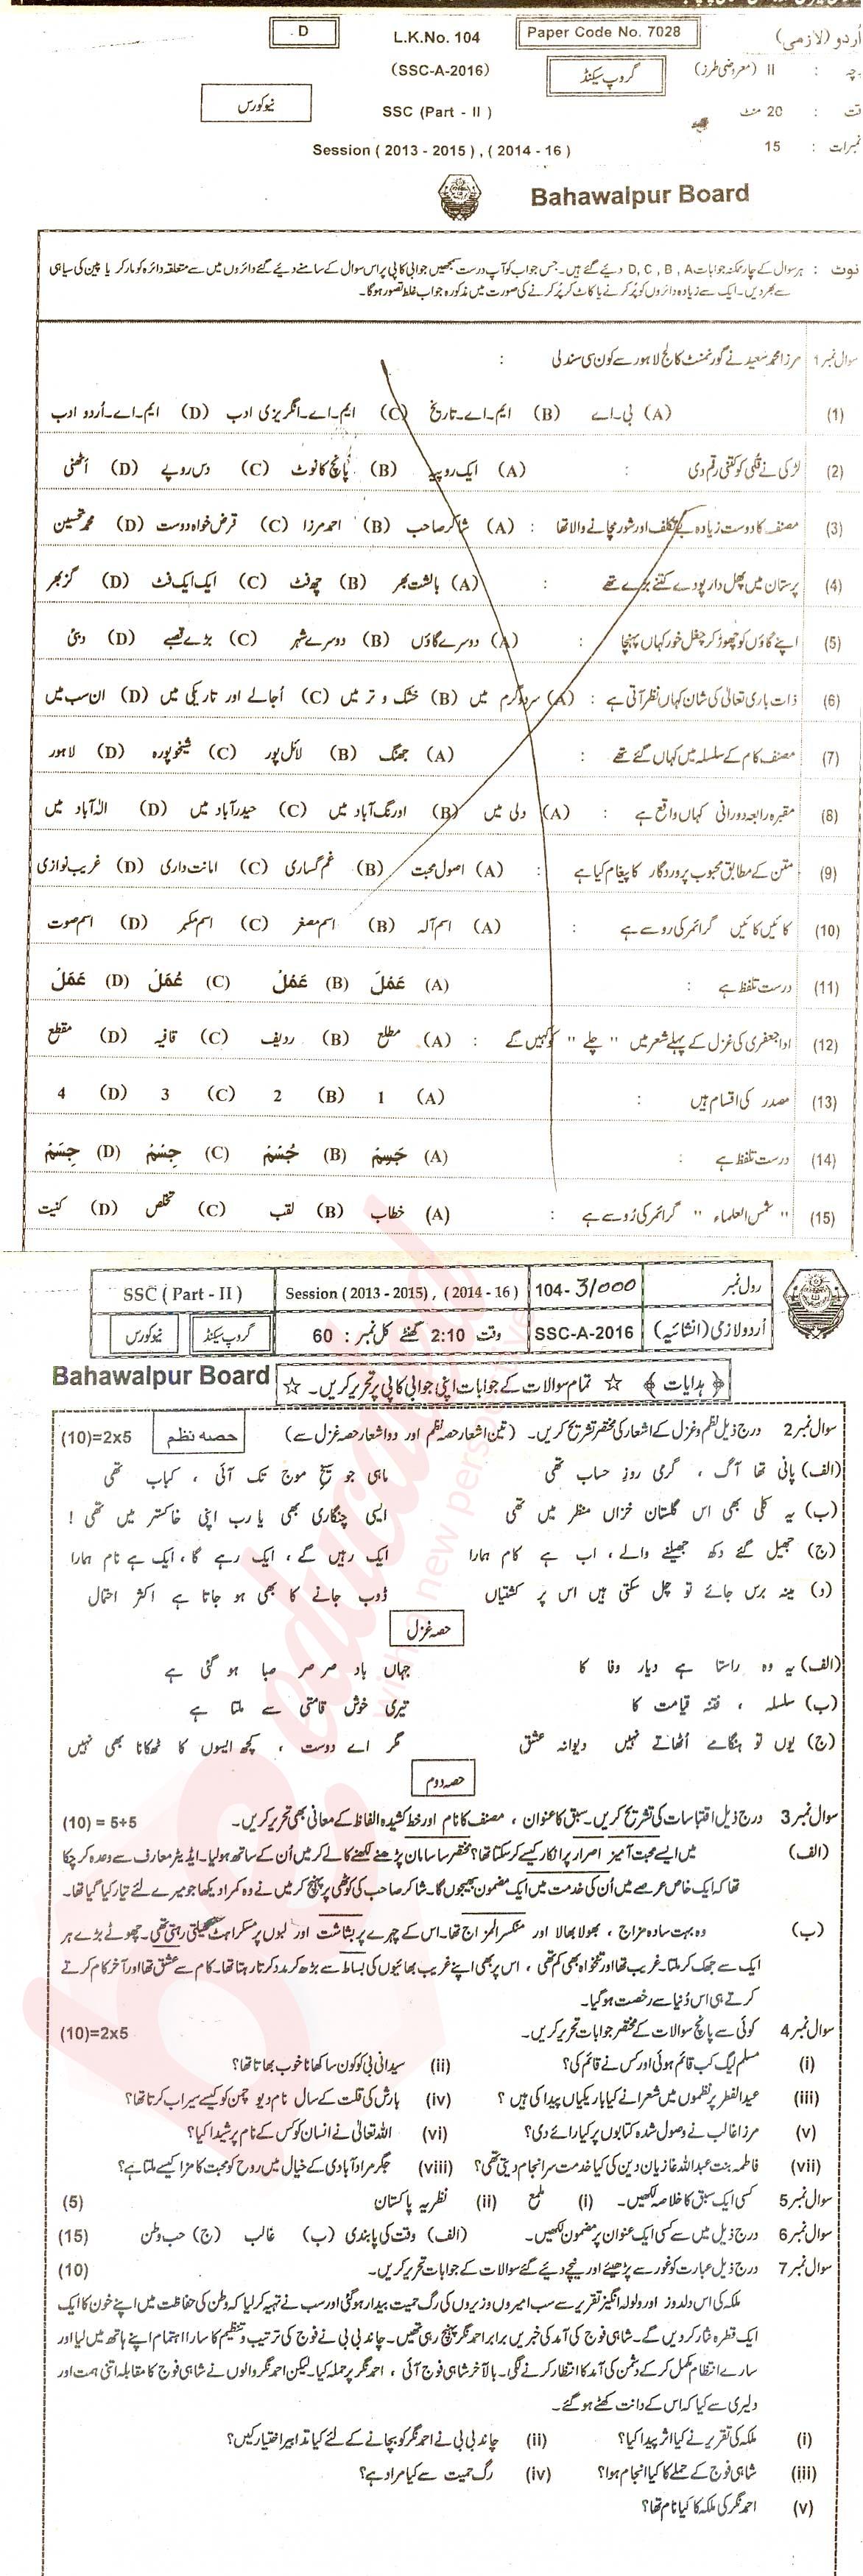 D
L.K.No. 104
Paper Code No. 7028
اُردو (لازمی)
(SSC-A-2016)
گروپ سیکنڈ
چہ : II (معروضی طرز)
نیو کورس
SSC (Part - II )
قت : 20 منٹ
Session ( 2013 - 2015 ) , ( 2014 - 16 )
نمبرات : 15
Bahawalpur Board
نوٹ : ہر سوال کے چار ممکنہ جوابات D, C , B , A دیئے گئے ہیں۔ جس جواب کو آپ درست سمجھیں جوابی کاپی پر اس سوال کے سامنے دیئے گئے دائروں میں سے متعلقہ دائرہ کو مارکر یا پین کی سیاہی
سے بھر دیں۔ ایک سے زیادہ دائروں کو پُر کرنے یا کاٹ کر پُر کرنے کی صورت میں مذکورہ جواب غلط تصور ہوگا۔
سوال نمبر 1 مرزا محمد سعید نے گورنمنٹ کالج لاہور سے کون سی سند لی :
(1) (A) بی۔اے (B) ایم۔اے۔تاریخ (C) ایم۔اے۔انگریزی ادب (D) ایم۔اے۔اُردو ادب
(2) لڑکی نے قُلی کو کتنی رقم دی : (A) ایک روپیہ (B) پانچ کا نوٹ (C) دس روپے (D) اٹھنی
(3) مصنف کا دوست زیادہ بے تکلف اور شور مچانے والا تھا : (A) شاکر صاحب (B) احمد مرزا (C) قرض خواہ دوست (D) محمد تحسین
(4) پرستان میں پھل دار پودے کتنے بڑے تھے : (A) بالشت بھر (B) چھ فٹ (C) ایک ایک فٹ (D) گز بھر
(5) اپنے گاؤں کو چھوڑ کر چغل خور کہاں پہنچا : (A) دوسرے گاؤں (B) دوسرے شہر (C) بڑے قصبے (D) دبئی
(6) ذات باری تعالیٰ کی شان کہاں نظر آتی ہے : (A) سرد و گرم میں (B) خشک و تر میں (C) اُجالے اور تاریکی میں (D) ان سب میں
(7) مصنف کام کے سلسلہ میں کہاں گئے تھے : (A) جھنگ (B) لائل پور (C) شیخوپورہ (D) لاہور
(8) مقبرہ رابعہ دورانی کہاں واقع ہے : (A) دلی میں (B) اورنگ آباد میں (C) حیدر آباد میں (D) الہ آباد میں
(9) متن کے مطابق محبوب پروردگار کا پیغام کیا ہے : (A) اصول محبت (B) غم گساری (C) امانت داری (D) غریب نوازی
(10) کائیں کائیں گرائمر کی رو سے ہے : (A) اسم آلہ (B) اسم مصغر (C) اسم مکبر (D) اسم صوت
(11) درست تلفظ ہے : (A) عَمَلَ (B) عَمْلُ (C) عُمَلُ (D) عَمَلُ
(12) ادا جعفری کی غزل کے پہلے شعر میں " چلے " کو کہیں گے : (A) مطلع (B) ردیف (C) قافیہ (D) مقطع
(13) مصدر کی اقسام ہیں : (A) 1 (B) 2 (C) 3 (D) 4
(14) درست تلفظ ہے : (A) جَسِمْ (B) جُسْمْ (C) جِسْمْ (D) جِسَمْ
(15) " شمس العلماء " گرائمر کی رُو سے ہے : (A) خطاب (B) لقب (C) تخلص (D) کنیت
SSC ( Part - II ) Session ( 2013 - 2015) , ( 2014 - 16 ) 104-31000 رول نمبر
نیو کورس گروپ سیکنڈ وقت 2:10 گھنٹے کل نمبر : 60 SSC-A-2016 اُردو لازمی (انشائیہ)
Bahawalpur Board ﴿ ہدایات ﴾ ☆ تمام سوالات کے جوابات اپنی جوابی کاپی پر تحریر کریں۔ ☆
سوال نمبر 2 درج ذیل نظم و غزل کے اشعار کی مختصر تشریح کریں۔ (تین اشعار حصہ نظم اور دو اشعار حصہ غزل سے) حصہ نظم (10)=2x5
(الف) پانی تھا آگ ، گرمی روزِ حساب تھی ماہی جو سیخِ موج تک آئی ، کباب تھی
(ب) یہ کلی بھی اس گلستانِ خزاں منظر میں تھی ایسی چنگاری بھی یا رب اپنی خاکستر میں تھی !
(ج) جھیل گئے دکھ جھیلنے والے ، اب ہے کام ہمارا ایک رہیں گے ، ایک رہے گا ، ایک ہے نام ہمارا
(د) مینہ برس جائے تو چل سکتی ہیں اس پر کشتیاں ڈوب جانے کا بھی ہو جاتا ہے اکثر احتمال
حصہ غزل
(الف) یہ وہ راستا ہے دیارِ وفا کا جہاں بادِ صر صر صبا ہو گئی ہے
(ب) سلسلہ ، فتنۂ قیامت کا تیری خوش قامتی سے ملتا ہے
(ج) یوں تو ہنگامے اُٹھاتے نہیں دیوانۂ عشق مگر اے دوست ، کچھ ایسوں کا ٹھکانا بھی نہیں
حصہ دوم
سوال نمبر 3 درج ذیل اقتباسات کی تشریح کریں۔ سبق کا عنوان ، مصنف کا نام اور خط کشیدہ الفاظ کے معانی بھی تحریر کریں۔ (10) = 5+5
(الف) میں ایسے محبت آمیز اصرار پر انکار کیسے کر سکتا تھا؟ مختصر سا سامان پڑھنے لکھنے کا لے کر میں اُن کے ساتھ ہولیا۔ ایڈیٹر معارف سے وعدہ کر چکا
تھا کہ ایک خاص عرصے میں اُن کی خدمت میں ایک مضمون بھیجوں گا۔ شاکر صاحب کی کوٹھی پر پہنچ کر میں نے وہ کمرا دیکھا جو میرے لئے تیار کیا گیا تھا۔
(ب) وہ بہت سادہ مزاج ، بھولا بھالا اور منکسر المزاج تھا۔ اس کے چہرے پر بشاشت اور لبوں پر مسکراہٹ کھیلتی رہتی تھی۔ چھوٹے بڑے ہر
ایک سے جھک کر ملتا۔ غریب تھا اور تنخواہ بھی کم تھی ، اس پر بھی اپنے غریب بھائیوں کی بساط سے بڑھ کر مدد کرتا رہتا تھا۔ کام سے عشق تھا اور آخر کام کرتے
کرتے ہی اس دُنیا سے رخصت ہوگیا۔
سوال نمبر 4 کوئی سے پانچ سوالات کے مختصر جوابات تحریر کریں۔ (10)=2x5
(i) مسلم لیگ کب قائم ہوئی اور کس نے قائم کی؟ (ii) سیدانی بی کو کون سا کھانا خوب بھاتا تھا؟
(iii) عید الفطر پر نظموں میں شعرا نے کیا باریکیاں پیدا کی ہیں ؟ (iv) بارش کی قلت کے سال نام دیو چمن کو کیسے سیراب کرتا تھا؟
(v) مرزا غالب نے وصول شدہ کتابوں پر کیا رائے دی؟ (vi) اللہ تعالیٰ نے انسان کو کس کے نام پر شیدا کیا؟
(vii) فاطمہ بنت عبداللہ غازیان دین کی کیا خدمت سرانجام دیتی تھی؟ (viii) جگر مراد آبادی کے خیال میں روح کو محبت کا مزا کیسے ملتا ہے؟
سوال نمبر 5 کسی ایک سبق کا خلاصہ لکھیں۔ (i) ملمع (ii) نظریہ پاکستان (5)
سوال نمبر 6 درج ذیل میں سے کسی ایک عنوان پر مضمون لکھیں۔ (الف) وقت کی پابندی (ب) غالب (ج) حب وطن (15)
سوال نمبر 7 درج ذیل عبارت کو غور سے پڑھیئے اور نیچے دیئے گئے سوالات کے جوابات تحریر کریں۔ (10)
ملکہ کی اس دلدوز اور ولولہ انگیز تقریر سے سب امیروں وزیروں کی رگ حمیت بیدار ہوگئی اور سب نے تہیہ کر لیا کہ وطن کی حفاظت میں اپنے خون کا ایک
ایک قطرہ نثار کر دیں گے۔ شاہی فوج کی آمد کی خبریں برابر احمد نگر پہنچ رہی تھیں۔ چاند بی بی نے فوج کی ترتیب و تنظیم کا سارا اہتمام اپنے ہاتھ میں لیا اور
سارے انتظام مکمل کر کے دشمن کی آمد کا انتظار کرنے لگی۔ بالآخر شاہی فوج آئی ، احمد نگر پر حملہ کیا۔ لیکن احمد نگر والوں نے شاہی فوج کا مقابلہ اتنی ہمت اور
دلیری سے کیا کہ اس کے دانت کھٹے ہو گئے۔
(i) ملکہ کی تقریر نے کیا اثر پیدا کیا؟ (ii) چاند بی بی نے احمد نگر کو بچانے کے لئے کیا تدابیر اختیار کیں؟
(iii) شاہی فوج کے حملے کا کیا انجام ہوا؟ (iv) رگ حمیت سے کیا مراد ہے؟
(v) احمد نگر کی ملکہ کا کیا نام تھا؟